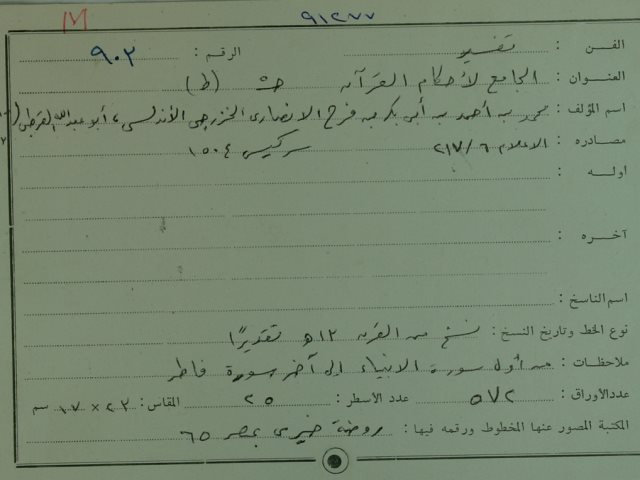 ٩١٢٧٧
الفـن : تفسير الرقم : ٩٠٢
العنـوان : الجامع لأحكام القرآن (ط)
اسم المؤلف : محمد بن أحمد بن أبي بكر بن فرح الانصارى الخزرجى الأندلسي، أبو عبدالله القرطبى
مصادره : الاعلام ٦/٢١٧ سركيس ١٥٠٤
اولـه :
آخـره :
اسم الناسخ :
نوع الخط وتاريخ النسخ : نسخ من القرن ١٢ هـ تقديرًا
ملاحظات : من أول سورة الانبياء الى آخر سورة فاطر
عدد الاوراق : ٥٧٢ عدد الأسطر : ٢٥ المقاس : ٢٣ × ١٧ سم
المكتبة المصور عنها المخطوط ورقمه فيها : روضة خيرى بمصر ٦٥